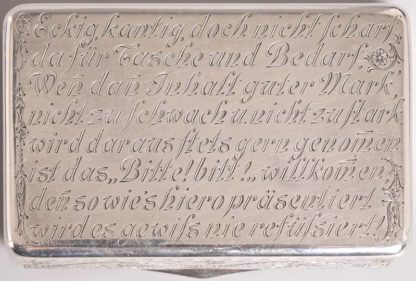 Eckig, kantig, doch nicht scharf,
da für Tasche und Bedarf.
Weñ dañ Inhalt guter Mark
nicht zu schwach u. nicht zu stark
wird daraus stets gern genom̃en
ist das „Bitte! bitt!„ willkom̃en,
deñ so wie's hier o präsentiert
wird es gewiss nie refüsiert!